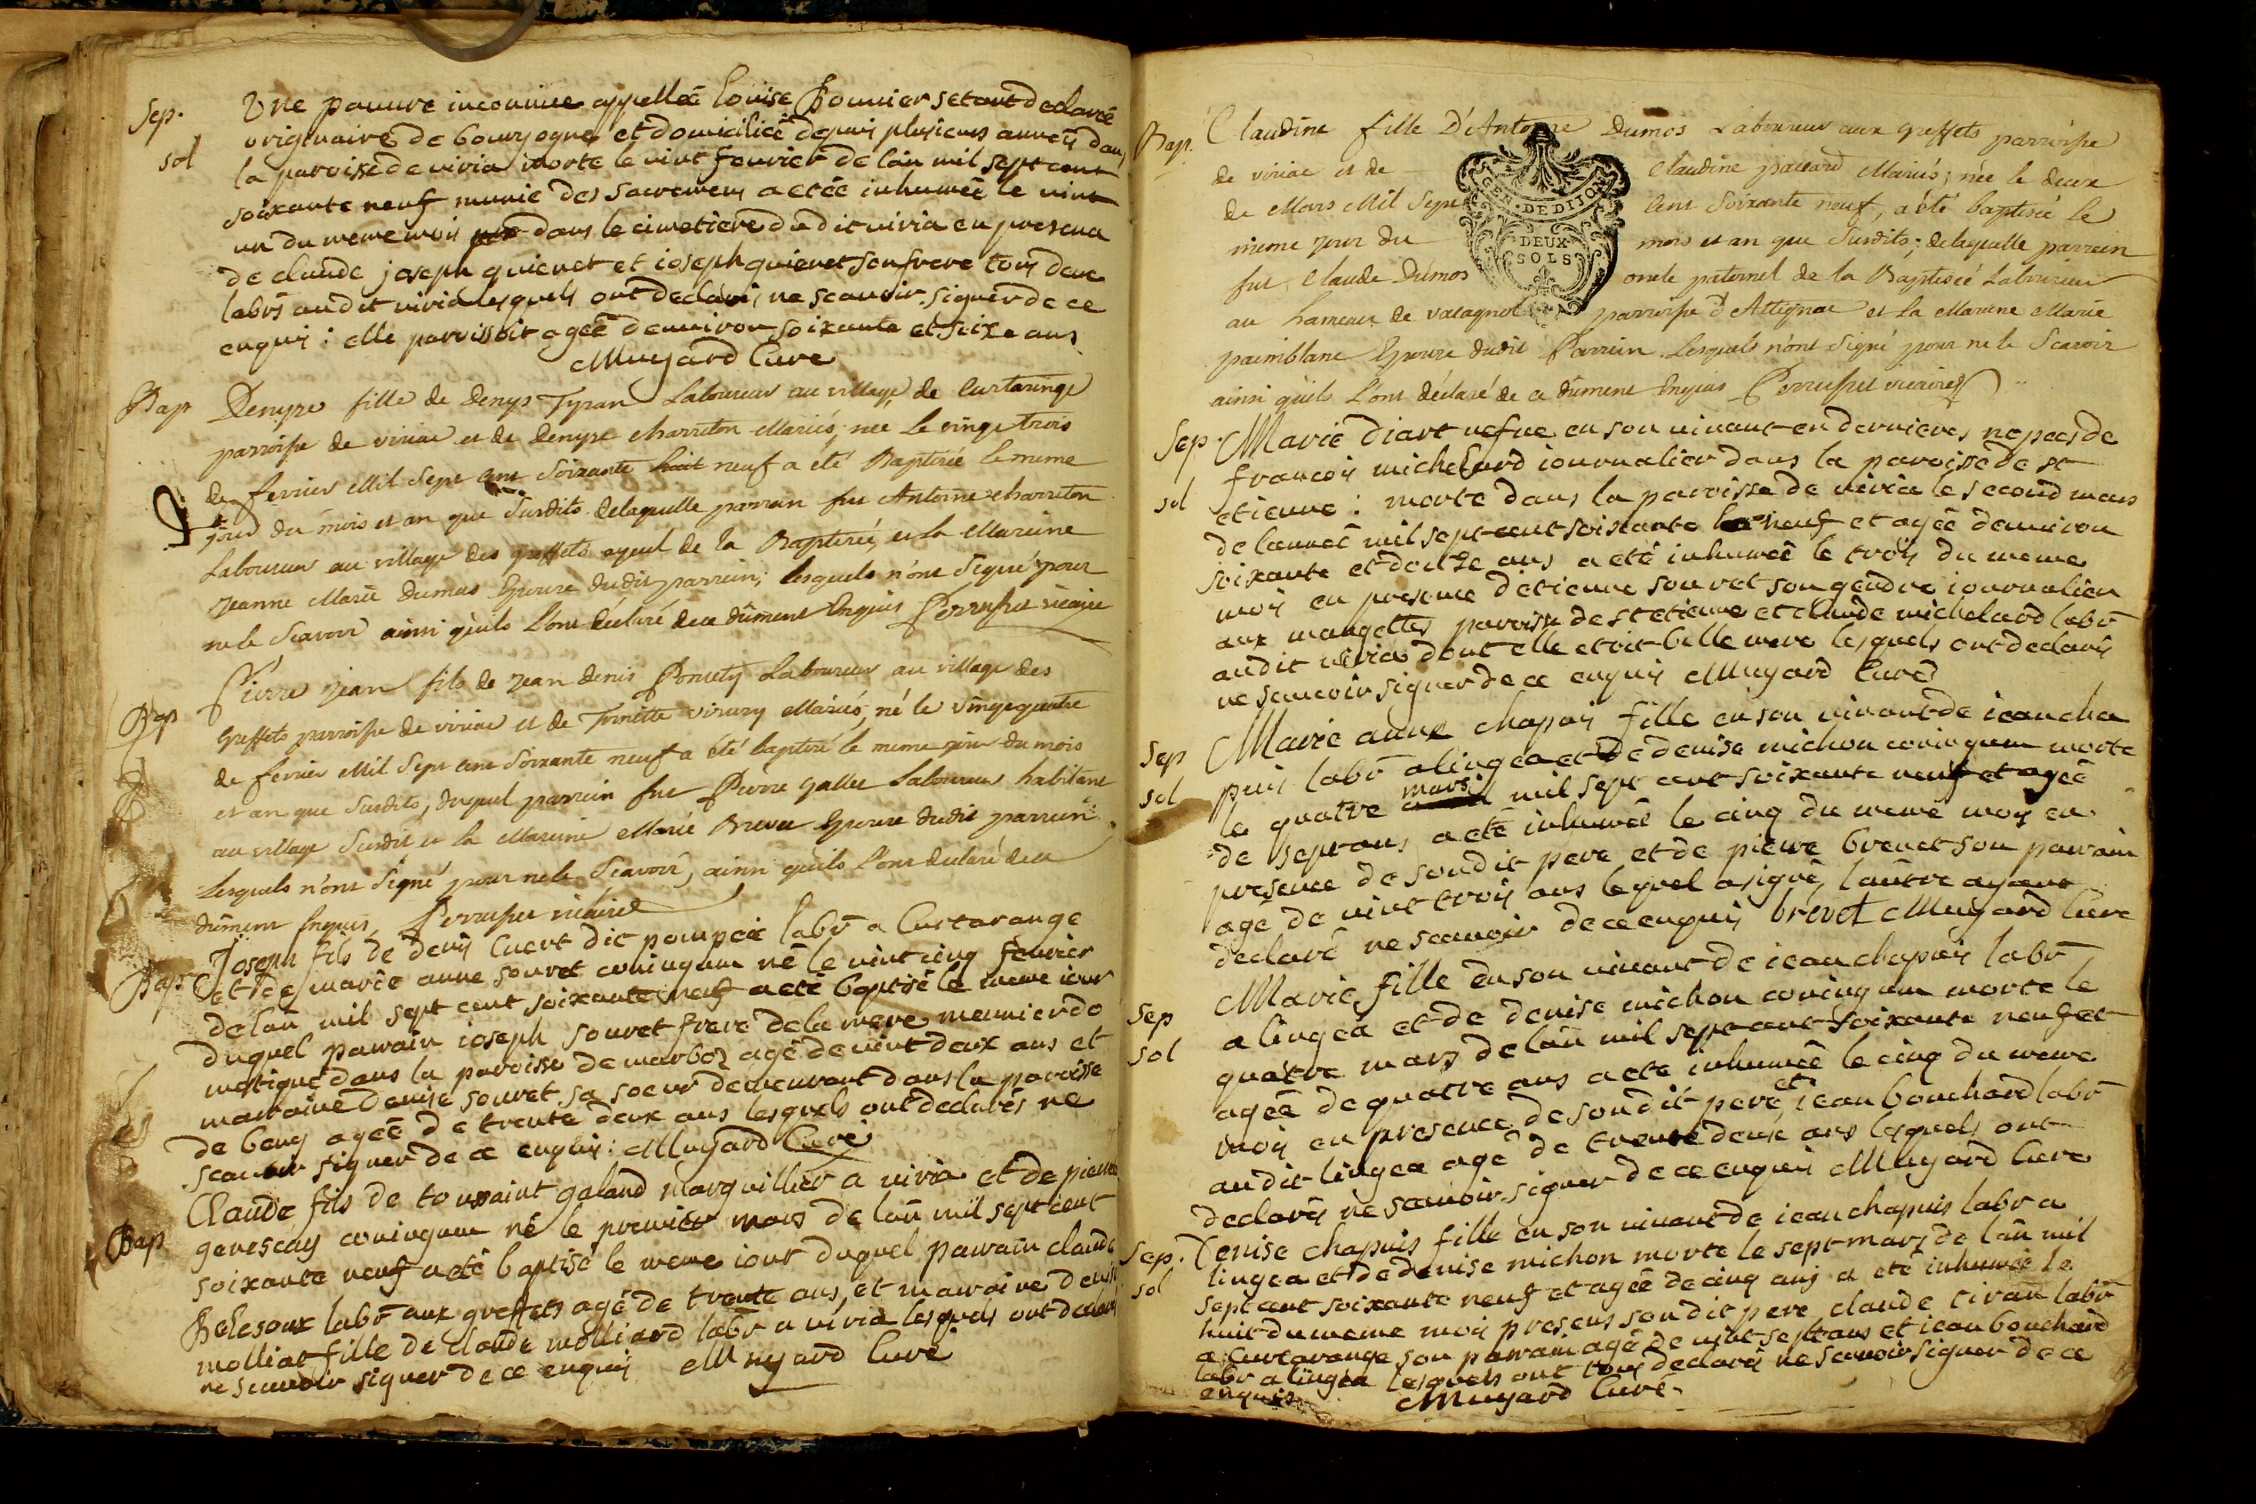 Sep. Une pauure inconnue appelleé Louise Bonnier setant declareé
sol originaire de bourgogne et domicilieé depuis plusieurs anneés dans
la paroisse de viria morte le vint feurier de lan mil sept cent
soixante neuf munie des sacremens a etée inhumeé le vint
un du meme mois dans le cimetiere dudit viria en presence
de claude joseph quienet et ioseph quienet son frere tous deux
labrs audit viria lesquels ont declarés ne scauoir signer de ce
enquis : elle paroissoit ageé denuiron soixante et seize ans
Muyard Curé
Bap Denyse fille de Denys Tyran Laboureur au village de Curtaringe
parroisse de viriac et de Denyse charreton Mariés, neé Le vingt trois
de fevrier Mil Sept Cent Soixante neuf a été Baptisée le meme
jour du mois et an que Susdits delaquelle parrain fut Antoine charreton
Laboureur au village des greffets ayeul de la Baptisée, et la Maraine
Jeanne Marie Dumas Epouse dudit parrain; lesquels n'ont signé pour
ne le Scavoir ainsi qu'ils L'ont déclaré de ce dûment Enquis Perruset vicaire
Bap Pierre Jean fils de Jean Denis Poncety Laboureur au village des
Greffets parroisse de viriac et de Toinette Mariés, né le vingt quatre
de fevrier Mil Sept Cent Soixante neuf a été baptisé le meme jour du mois
et an que Susdits, duquel parrain fut Pierre gallet Laboureur habitant
au village Susdit et la Maraine Marie Brevet Epouse dudit parrain
Lesquels n'ont signé pour ne le Scavoir, ainsi qu'ils L'ont declaré de ce
dûment Enquis, Perruset vicaire
Bap Joseph fils de denis Cuert dit pompée labr a Curtarange
et de marie anne souret coniugum né le vint cinq feurier
de lan mil sept cent soixante neuf a eté baptisé le meme iour
duquel parrain ioseph souret frere de la mere meunier do
mestique dans la paroisse de marboz agé de vint deux ans et
marraine denise souret sa soeur demeurant dans la paroisse
de beny ageé de trente deux ans lesquels ont declarés ne
scauoir signer de ce enquis : Muyard Curé
Bap Claude fils de toussaint galand marguillier a viria et de pierrette
coniugum né le premier mars de lan mil sept cent
soixante neuf a eté baptisé le meme iour duquel parrain claude
labr aux greffets agé de trente ans, et marraine denise
molliat fille de claude molliard labr a viria lesquels ont declarés
ne scauoir signer de ce enquis Muyard Curé
Bap. Claudine fille D'Antoine Dumas Laboureur aux Greffets parroisse
de viriac et de Claudine pacard Mariés; née le deux
de Mars Mil Sept Cent Soixante neuf, a été baptisée le
meme jour du mois et an que Susdits; delaquelle parrain
fut Claude Dumas oncle paternel de la Baptisée Laboureur
au hameau de vacagnol parroisse d'Attignac et la Maraine Marie
paimblanc Epouse dudit Parrain Lesquels n'ont Signé pour ne le Scavoir
ainsi qu'ils L'ont déclaré de ce dûment Enquis Perruset vicaire
GEN. DE DIJON
DEUX
SOLS
Sep. Marie diart uefue en son uiuant en dernieres nopces de
francois michelard iournalier dans la paroisse de st
sol etienne : morte dans la paroisse de viria le second mars
de lanneé mil sept cent soixante neuf et ageé denuiron
soixante et douze ans a eté inhumeé le trois du meme
mois en presence d'etienne souret son gendre iournalier
aux mangettes paroisse de st etienne et claude michelard labr
audit viria dont elle etoit belle mere lesquels ont declarés
ne scauoir signer de ce enquis Muyard Curé
Sep Marie anne chapuis fille en son uiuant de iean cha
sol puis labr a lingea et de denise michon coniugum morte
le quatre mars mil sept cent soixante neuf et ageé
de sept ans a eté inhumeé le cinq du meme mois en
presence de sondit pere et de pierre breuet son parrain
agé de vint trois ans lequel a signé, l'autre ayant
declaré ne scauoir de ce enquis brevet Muyard Curé
Sep Marie fille en son uiuant de iean chapuis labr
sol a lingea et de denise michon coniugum morte le
quatre mars de lan mil sept cent soixante neuf et
ageé de quatre ans a eté inhumeé le cinq du meme
mois en presence de sondit pere et iean bouchard labr
audit lingea agé de trente deux ans lesquels ont
declarés ne scauoir signer de ce enquis Muyard Curé
Sep. Denise chapuis fille en son uiuant de iean chapuis labr a
sol lingea et de denise michon morte le sept mars de lan mil
sept cent soixante neuf et ageé de cinq ans a eté inhumeé le
huit du meme mois presens sondit pere claude tiran labr
a curtarange son parrain agé de vint sept ans et iean bouchard
labr a lingea lesquels ont tous declarés ne scauoir signer de ce
enquis Muyard Curé